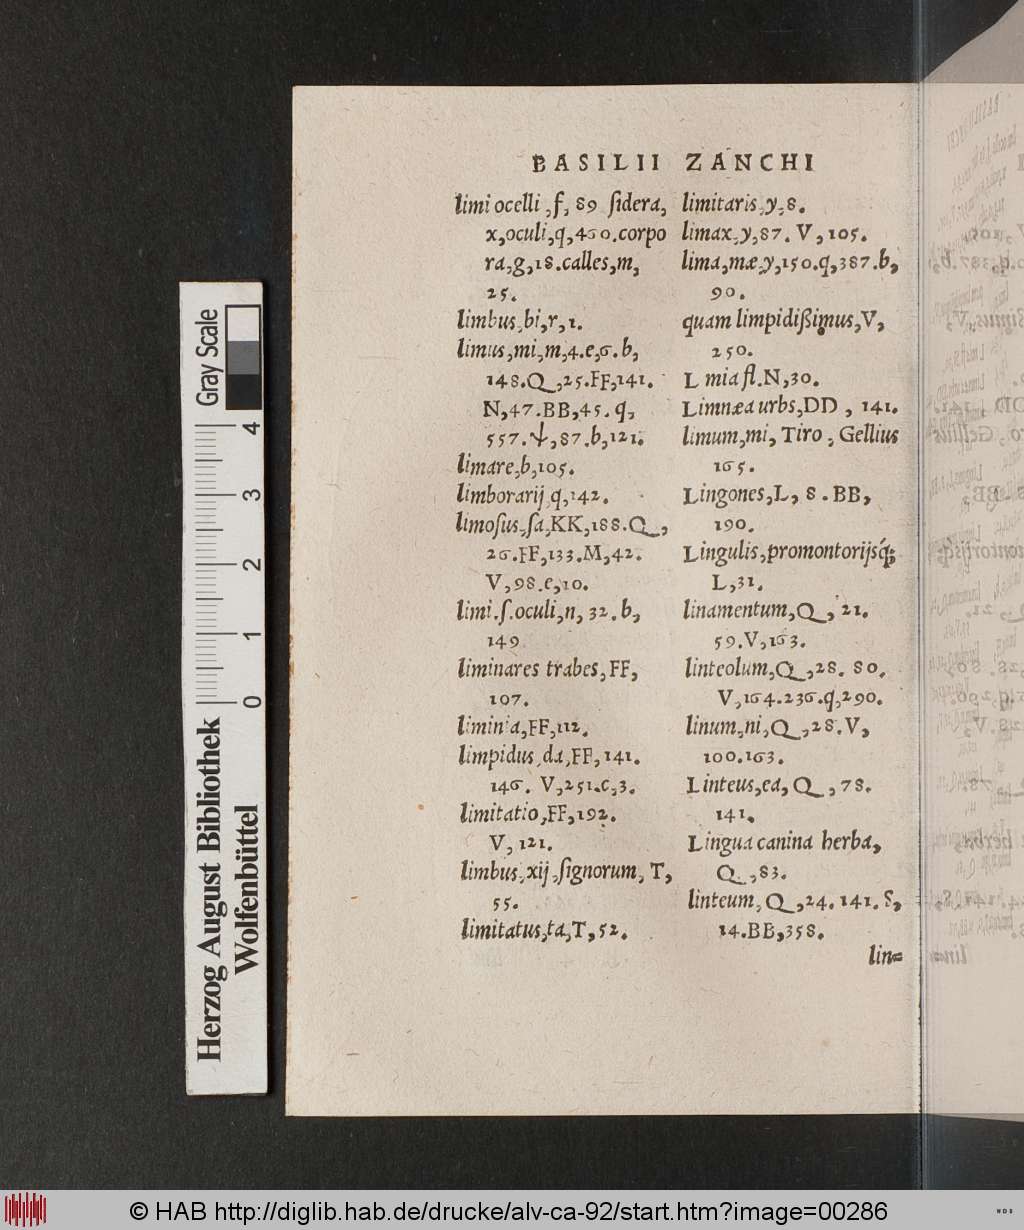 BASILII ZANCHI
limi ocelli, f, 89 ſidera,
x, oculi, q, 460. corpo
ra, g, 18. calles, m,
25.
limbus, bi, r, 1.
limus, mi, m, 4. e, 6. b,
148. Q, 25. FF, 141.
N, 47. BB, 45. q,
557. ψ, 87. b, 121.
limare, b, 105.
limborarij q, 142.
limoſus, ſa, KK, 188. Q,
26. FF, 133. M, 42.
V, 98. e, 10.
limi. ſ. oculi, n, 32. b,
149
liminares trabes, FF,
107.
liminia, FF, 112.
limpidus, da, FF, 141.
146. V, 251. c, 3.
limitatio, FF, 192.
V, 121.
limbus, xij, ſignorum, T,
55.
limitatus, ta, T, 52.
limitaris, y, 8.
limax, y, 87. V, 105.
lima, mæ, y, 150. q, 387. b,
90.
quam limpidißimus, V,
250.
L mia fl. N, 30.
Limnæa urbs, DD, 141.
limum, mi, Tiro, Gellius
165.
Lingones, L, 8. BB,
190.
Lingulis, promontorijsq́;
L, 31.
linamentum, Q, 21.
59. V, 163.
linteolum, Q, 28. 80.
V, 164. 236. q, 290.
linum, ni, Q, 28. V,
100. 163.
Linteus, ea, Q, 78.
141.
Lingua canina herba,
Q, 83.
linteum, Q, 24. 141. S,
14. BB, 358.
lin=
Gray Scale
0 1 2 3 4
Herzog August Bibliothek
Wolfenbüttel
© HAB http://diglib.hab.de/drucke/alv-ca-92/start.htm?image=00286
WDB